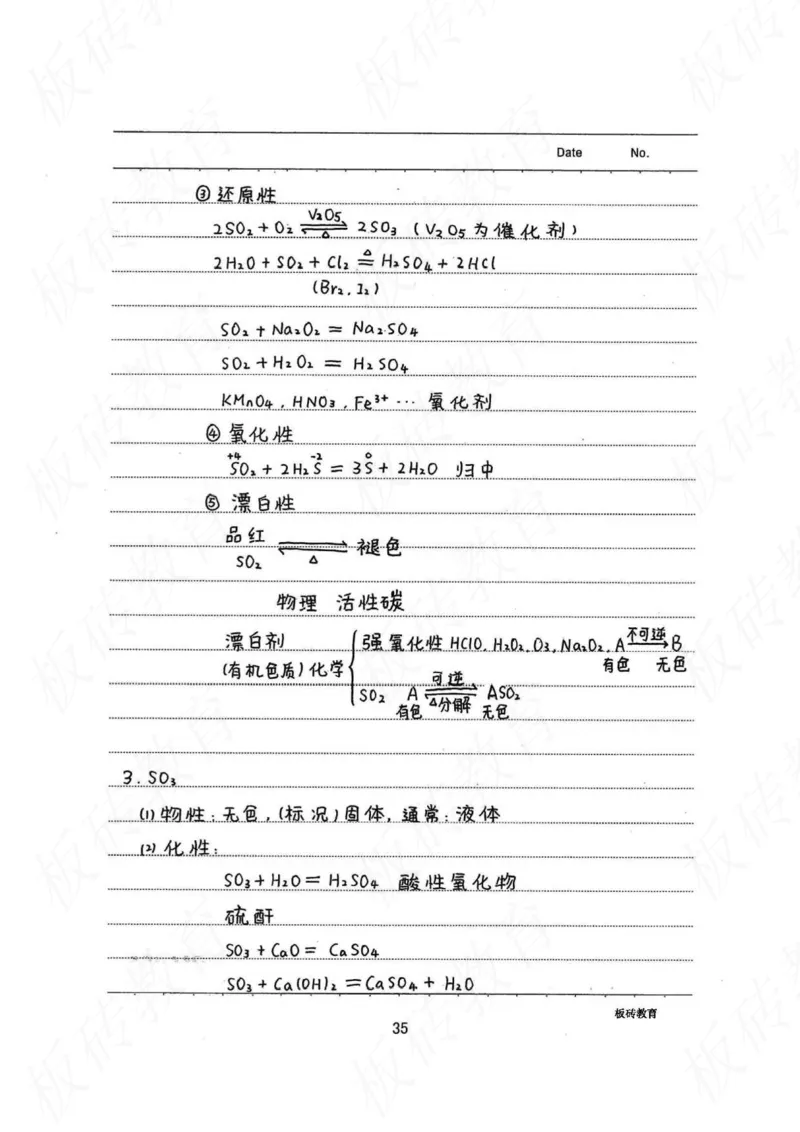 Date No.
③还原性
2SO₂+O₂ ⇌ 2SO₃ (V₂O₅为催化剂)
V₂O₅
△
2H₂O+SO₂+Cl₂ =△= H₂SO₄+2HCl
(Br₂, I₂)
SO₂+Na₂O₂ = Na₂SO₄
SO₂+H₂O₂ = H₂SO₄
KMnO₄, HNO₃, Fe³⁺ … 氧化剂
④氧化性
+4 -2 0
SO₂+2H₂S = 3S+2H₂O 归中
⑤漂白性
品红 ⇌ 褪色
SO₂ △
物理 活性碳
漂白剂 { 强氧化性 HClO, H₂O₂, O₃, Na₂O₂, A 不可逆→ B
(有机色质)化学 有色 无色
可逆
SO₂ A ⇌ ASO₂
有色 △分解 无色
3. SO₃
(1)物性:无色,(标况)固体,通常:液体
(2)化性:
SO₃+H₂O = H₂SO₄ 酸性氧化物
硫酐
SO₃+CaO = CaSO₄
SO₃+Ca(OH)₂ = CaSO₄+H₂O
板砖教育
35